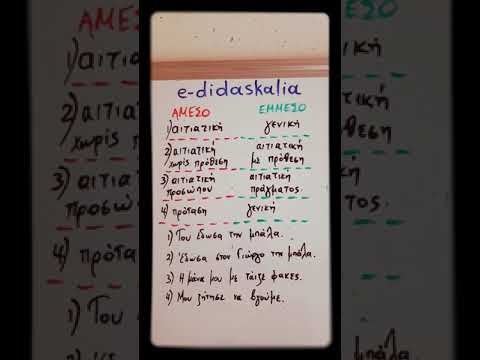 e-didaskalia
ΑΜΕΣΟ ΕΜΜΕΣΟ
1) αιτιατική γενική
2) αιτιατική χωρίς πρόθεση αιτιατική με πρόθεση
3) αιτιατική προσώπου αιτιατική πράγματος.
4) πρόταση γενική
1) Του έδωσα την μπάλα.
2) Έδωσα στον Γιώργο την μπάλα.
3) Η μάνα μου με τάιζε φακες.
4) Μου ζήτησε να βγούμε.